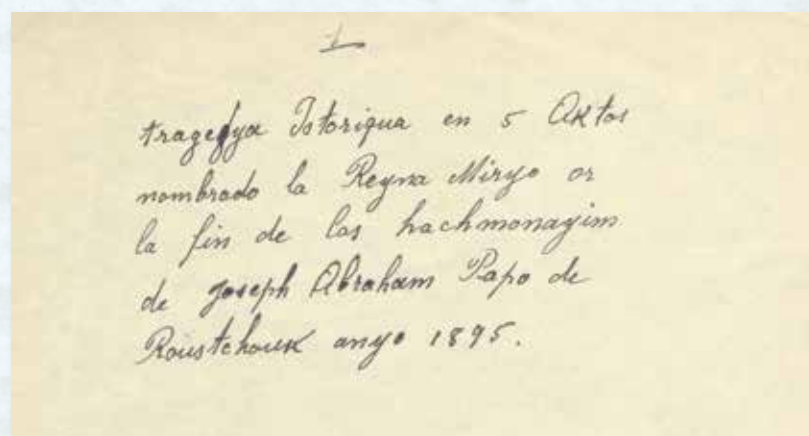 1
tragedya Istoriqua en 5 Aktos
nombrado la Reyna Mirye or
la fin de los hachmonayim
de Joseph Abraham Papo de
Roustchouk anyo 1895.